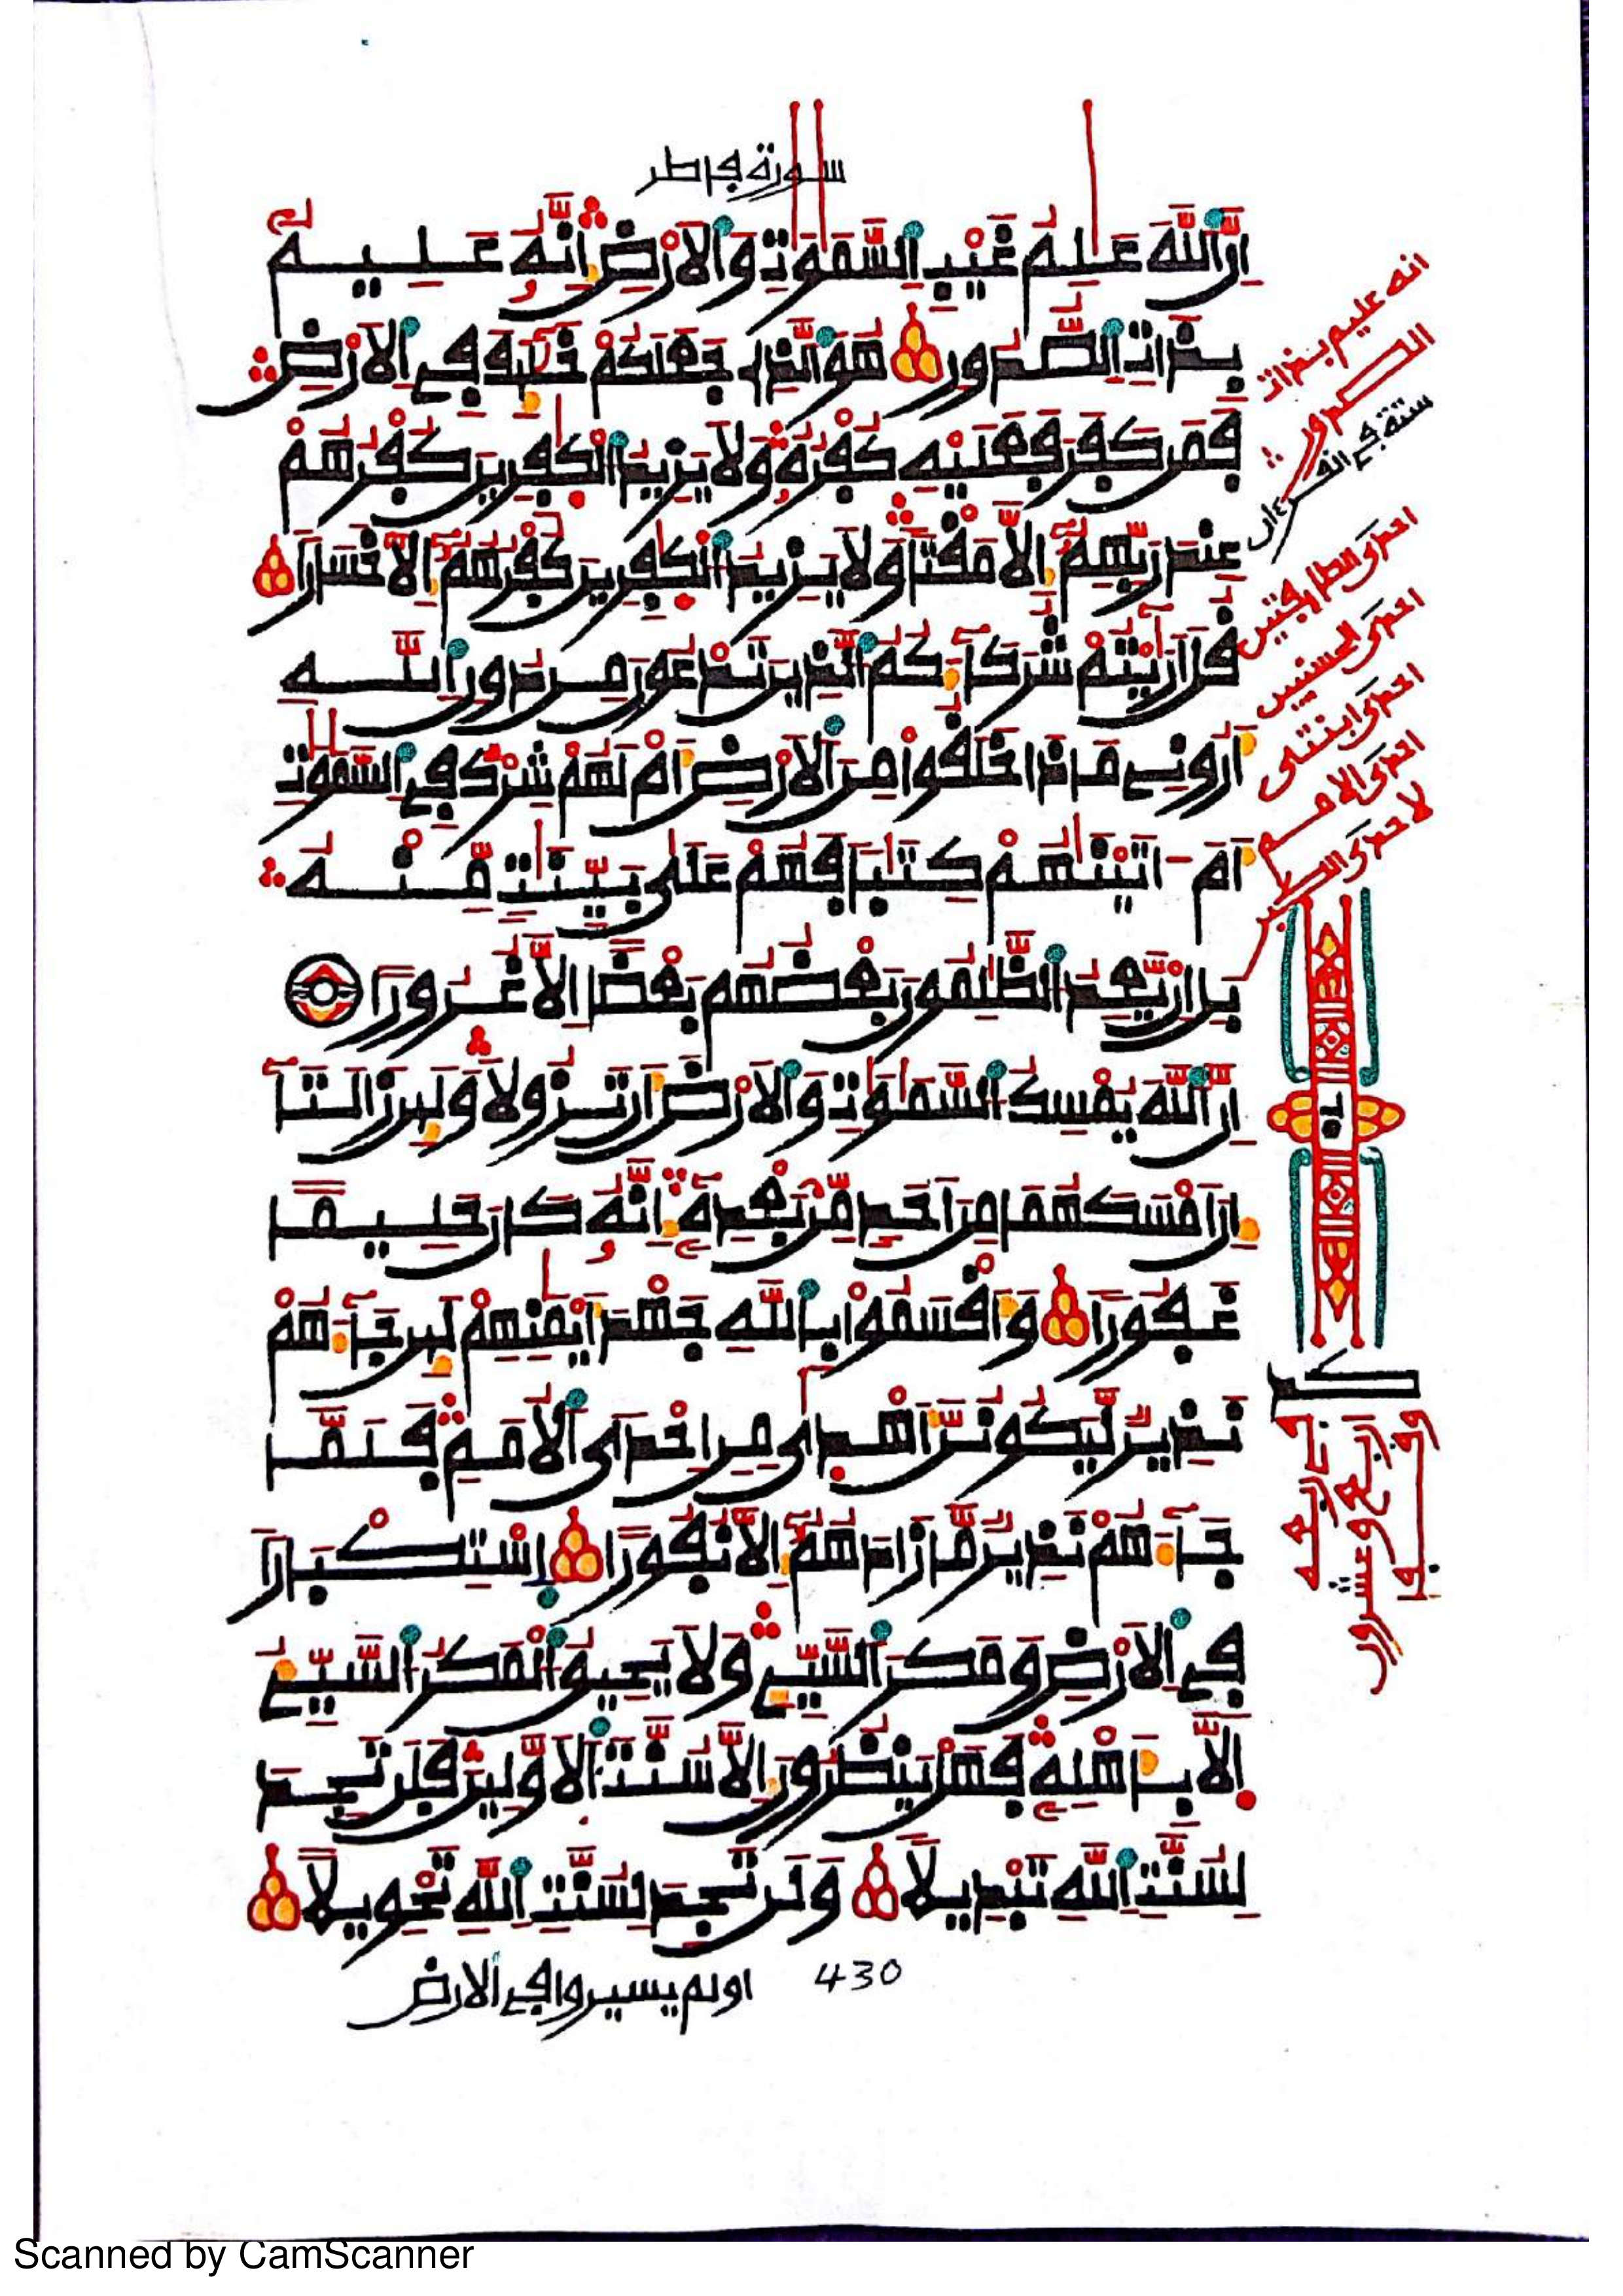 سورة فاطر
إن الله علم غيب السموت والارض إنه عليم
بذات الصدور هو الذي جعلكم خليف في الارض
فمن كفر فعليه كفره ولا يزيد الكفرين كفرهم
عند ربهم إلا مقتا ولا يزيد الكفرين كفرهم إلا خسارا
قل ارايتم شركاءكم الذين تدعون من دون الله
اروني ماذا خلقوا من الارض ام لهم شرك في السموت
ام اتينهم كتبا فهم على بينت منه
بل إن يعد الظلمون بعضهم بعضا إلا غرورا
إن الله يمسك السموت والارض ان تزولا ولين زالتا
إن امسكهما من احد من بعده إنه كان حليما
غفورا واقسموا بالله جهد ايمنهم لين جاءهم
نذير ليكونن اهدى من احدى الامم فلما
جاءهم نذير ما زادهم إلا نفورا إستكبارا
في الارض ومكر السيئ ولا يحيق المكر السيئ
إلا باهله فهل ينظرون إلا سنت الاولين فلن تجد
لسنت الله تبديلا ولن تجد لسنت الله تحويلا
430
اولم يسيروا في الارض
انه عليم بذات
الصدور
ستة في
احدى الطايفتين
احدى الحسنيين
احدى ابنتي
احدى الامم
لاحدى الكبر
Scanned by CamScanner